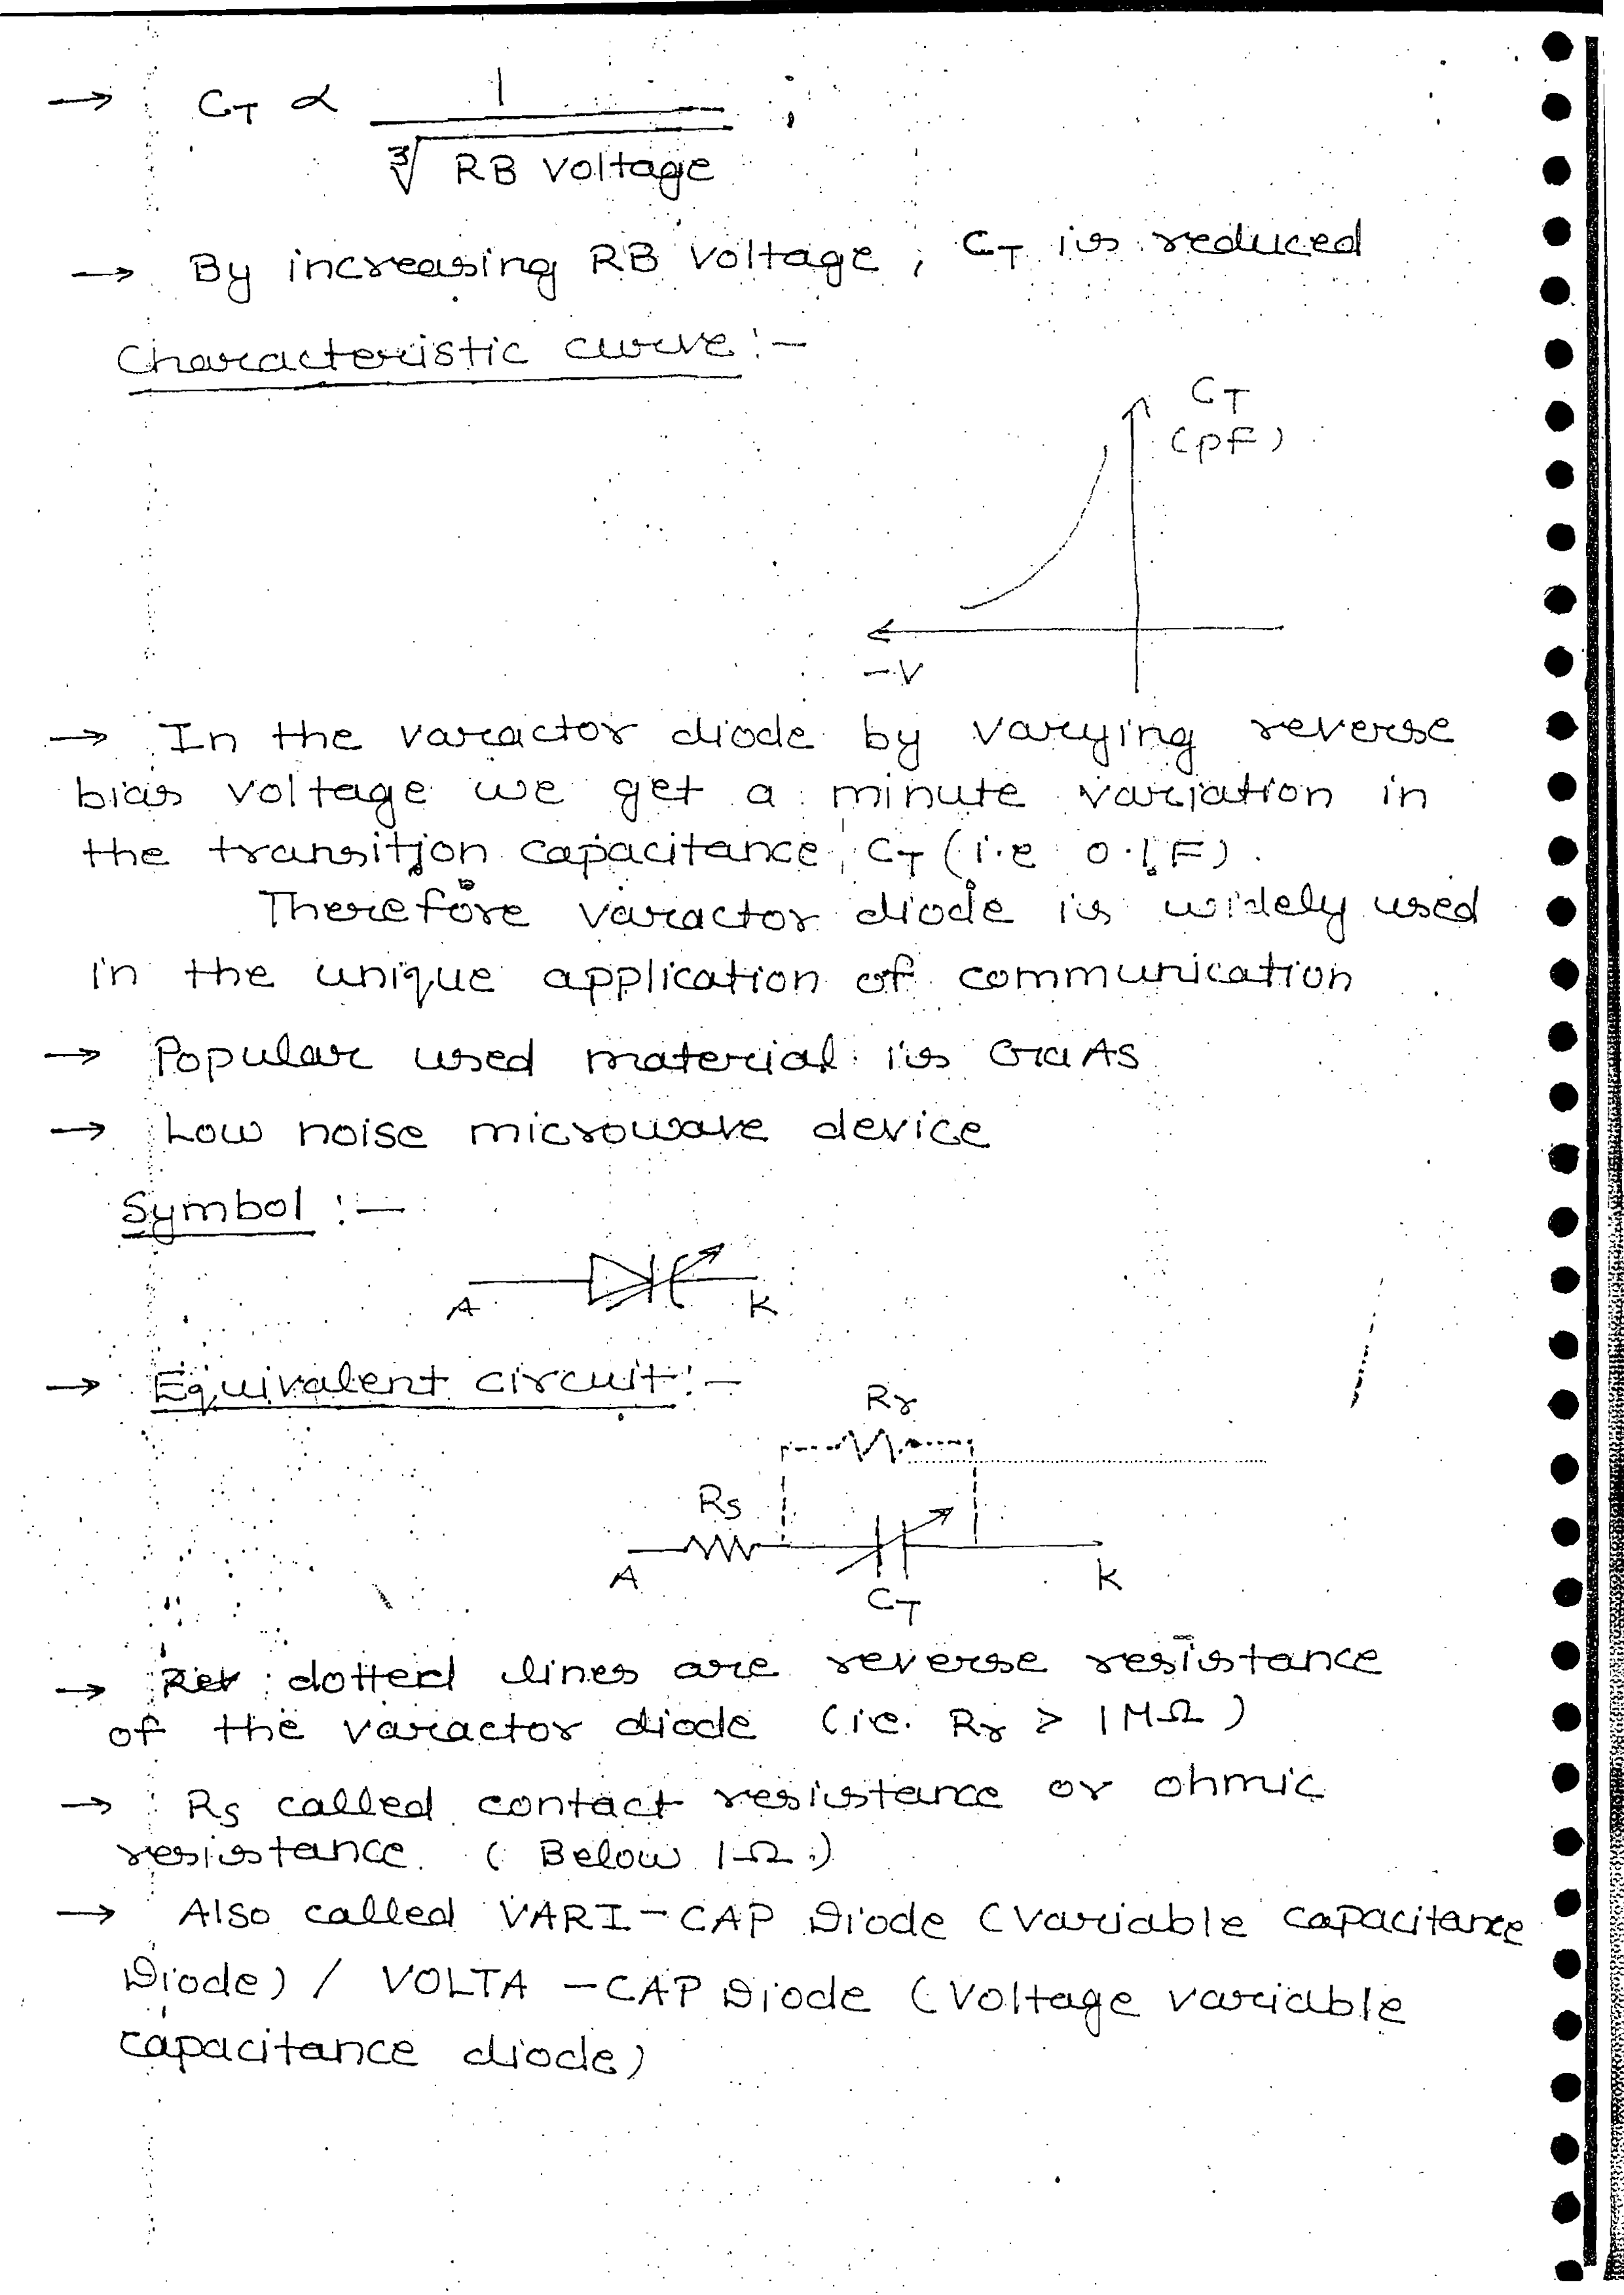 → C_T ∝ 1 / ∛(RB Voltage) ;
→ By increasing RB Voltage, C_T is reduced
Characteristic curve :-
C_T
(pF)
-V
→ In the varactor diode by varying reverse
bias voltage we get a minute variation in
the transition capacitance, C_T (i.e 0.1F).
Therefore varactor diode is widely used
in the unique application of communication
→ Popular used material is GaAs
→ Low noise microwave device
Symbol :-
A K
→ Equivalent circuit :-
R_r
R_s
A K
C_T
→ dotted lines are reverse resistance
of the varactor diode (i.e. R_r > 1MΩ)
→ R_s called contact resistance or ohmic
resistance. (Below 1Ω)
→ Also called VARI-CAP Diode (Variable capacitance
Diode) / VOLTA-CAP Diode (Voltage variable
capacitance diode)